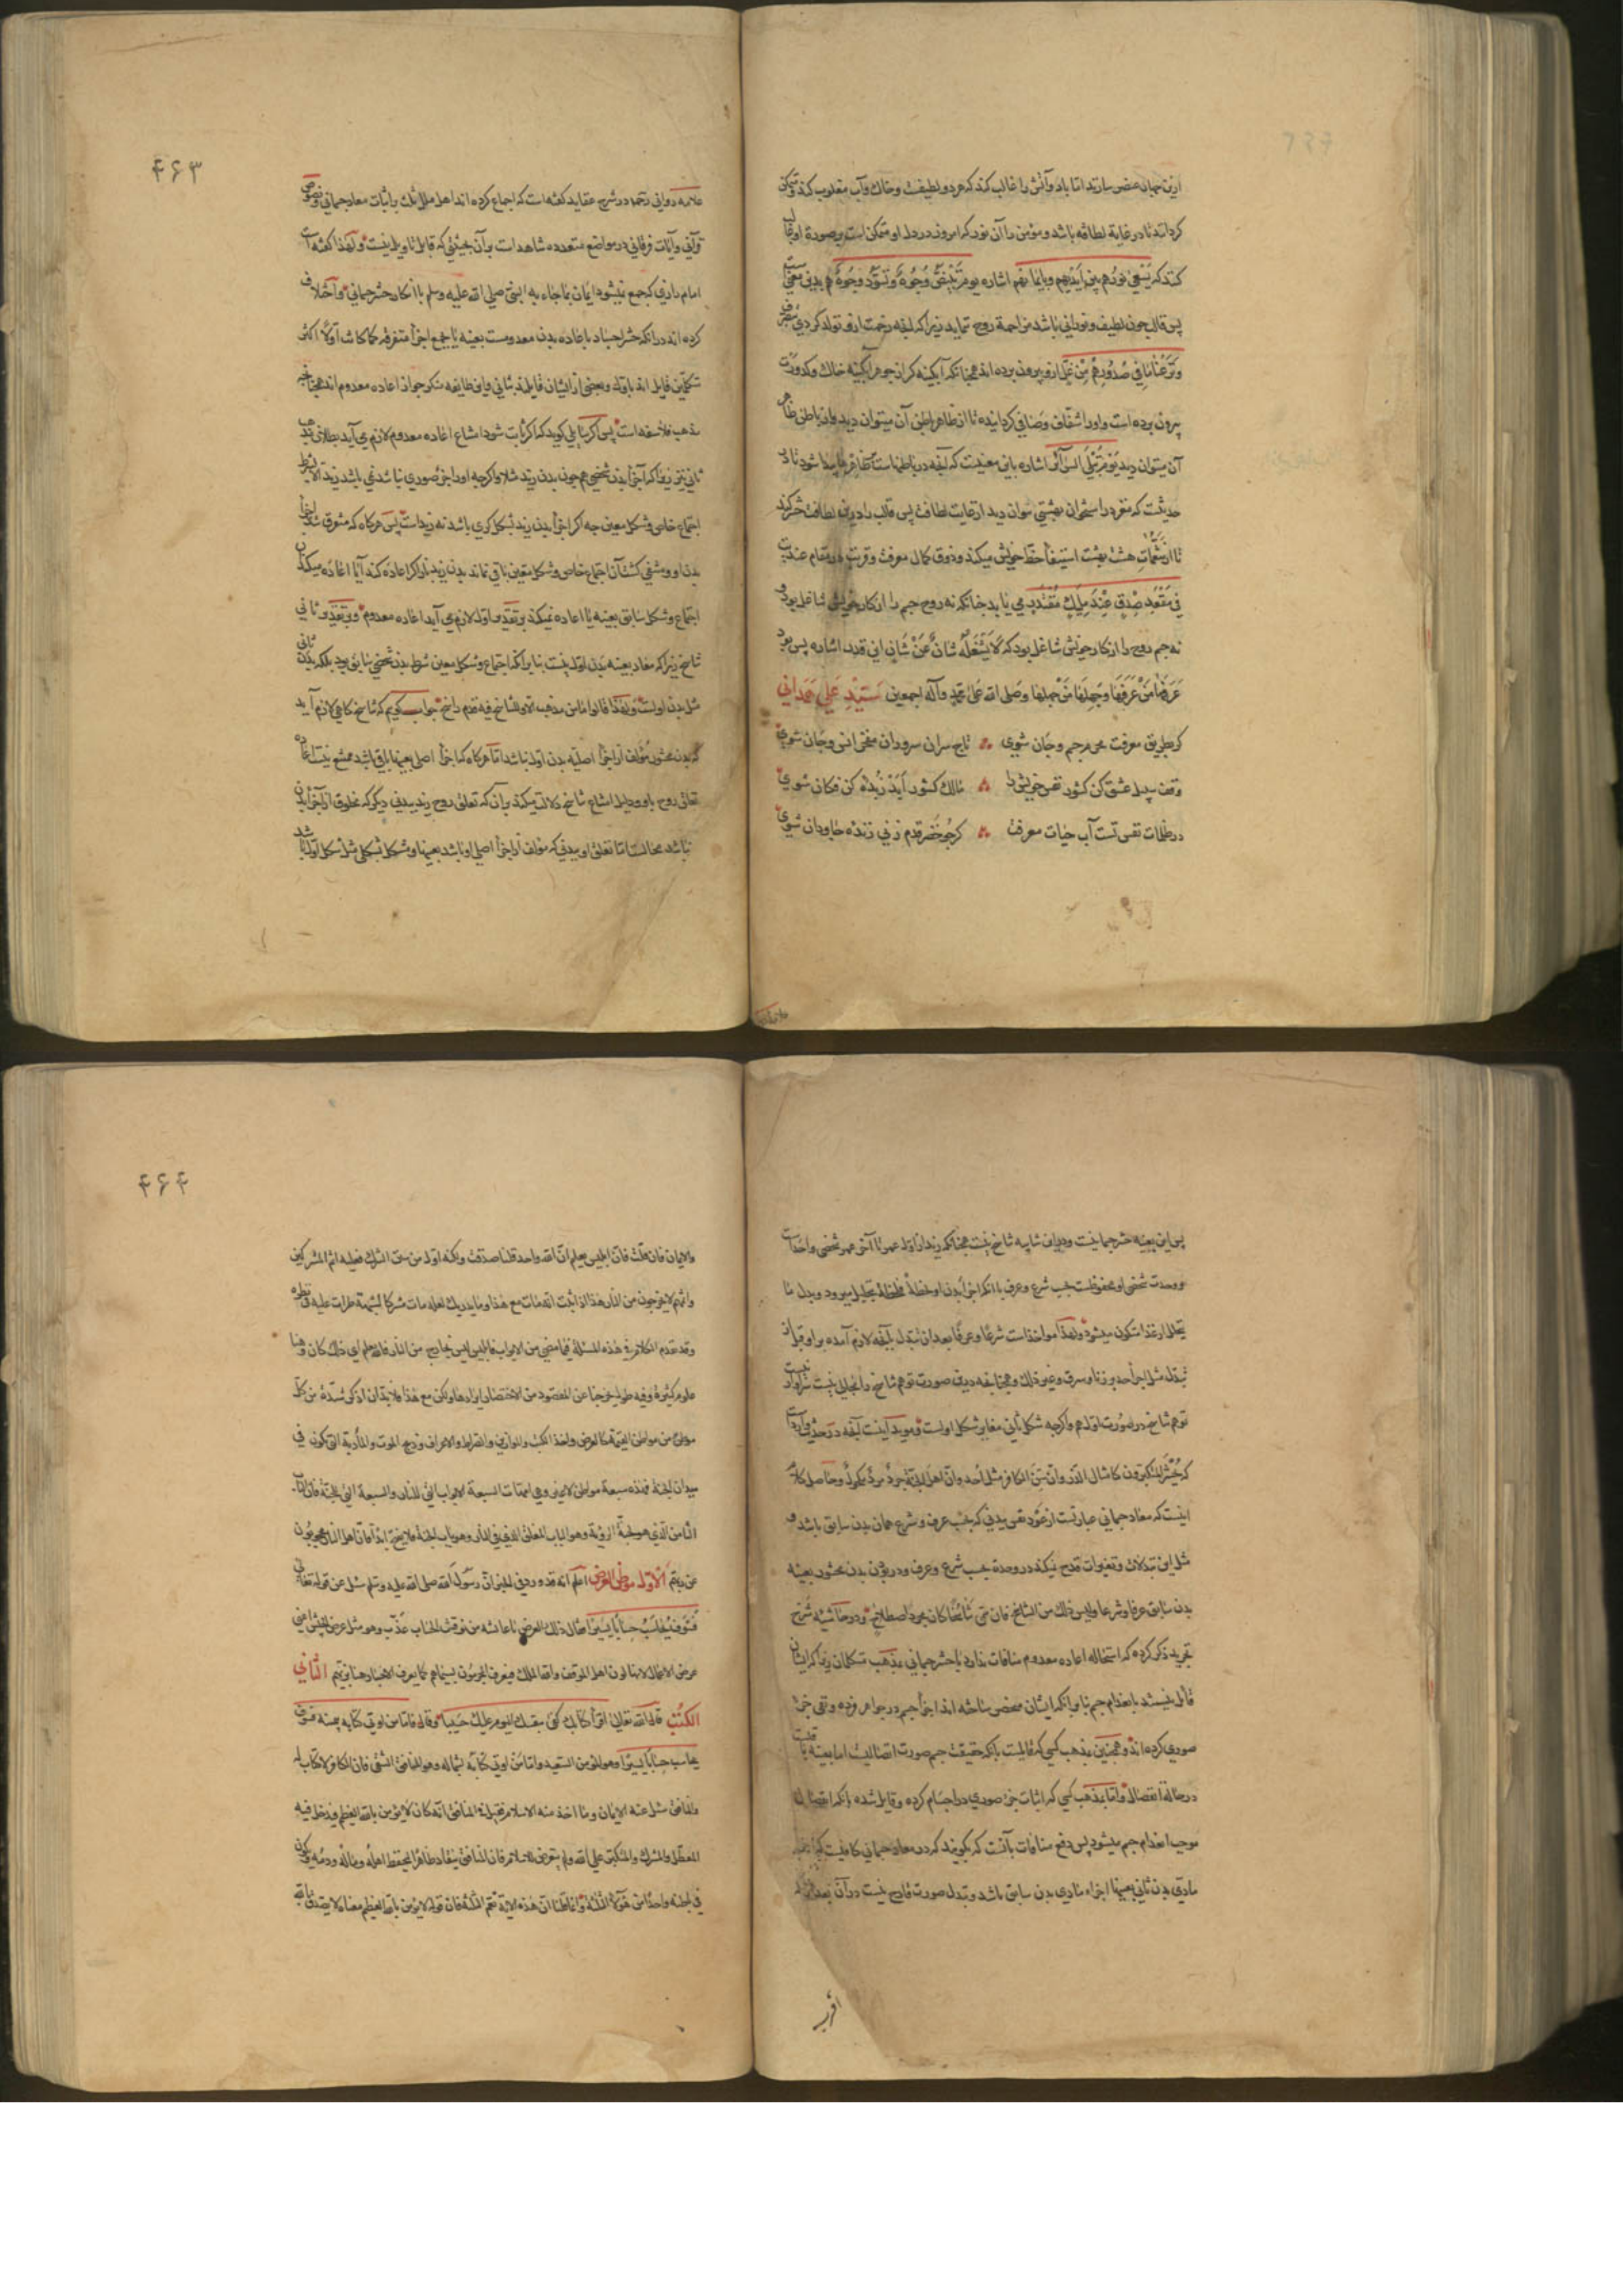 ازین جهان عنصر سازند اما باد و آتش را غالب کند که هر دو لطیفست و خاک و آب مغلوب کند و متمکن
کردانند تا در غایة لطافه باشد و مؤمن را آن نور که امروز در دل او متمکن است بر صورة او
کنند که یسعی نورهم بین ایدیهم و بایمانهم اشاره یوم تبیض وجوه و تسود وجوه هم بدین معنی است
پس قالب چون لطیف و نورانی باشد مزاحمة روح ننماید زیرا که لیفه زحمت ازو تولد کردی
و نزعنا ما فی صدورهم من غل ازو بیرون برده اند همچنانکه آبکینه کر از جوهر آبکینه خاک و کدورت
بیرون برده است و اورا شفاف و صافی کردانیده تا از ظاهرا باطن آن میتوان دید و از باطن ظاهر
آن میتوان دید یوم تبلی السرائر اشاره باین معنیست که لیفه در باطنهاست ظاهر پیدا شود تا در
حدیثست که مغز در استخوان بهشتی بتوان دید از غایت لطافت پس قالب را درین لطافت حشر کنند
تا از تنعمات هشت بهشت استیفا حظ خویش میکند و ذوق کمال معرفت و قربت در مقام عندیت
فی مقعد صدق عند ملیک مقتدر می یابد چنانکه نه روح جسم را از کار خویش شاغل بود و
نه جسم روح را از کار خویش شاغل بود که لا یشغله شان عن شان این قدر اشاره پس بود
عرفها من عرفها و جهلها من جهلها و صلی الله علی محمد و آله اجمعین سید علی همدانی
کر بطریق معرفت محرم جسم و جان شوی تاج سران سروران مفخر انس و جان شوی
وقف سبیل عشق کن کشور نفس خویش را مالک کشور ابد زبده کن فکان شوی
در ظلمات نفس تست آب حیات معرفت کر چو خضر قدم زنی زنده جاودان شوی
۴۶۳
علامه دوانی رحمه در شرح عقاید کفته است که اجماع کرده اند اهل ملل ثلث بر اثبات معاد جسمانی و نصوص
قرآنی و آیات فرقانی در مواضع متعدده شاهد است بر آن بحیثی که قابل تاویل نیست و لهذا کفته است
امام رازی که جمع نمیشود ایمان بما جاء به النبی صلی الله علیه و سلم با انکار حشر جسمانی و اختلاف
کرده اند در انکه حشر اجساد باعاده بدن معدومست بعینه یا بجمع اجزا متفرقه کما کانت اولا اکثر
متکلمین قایل اند باول و بعضی از ایشان قایلند بثانی و این طایفه منکر جواز اعاده معدوم اند همچنانچه
مذهب فلاسفه است پس اکر قایلی کوید که اکر ثابت شود امتناع اعاده معدوم لازم می آید بطلان مذهب
ثانی نیز زیرا که اجزا بدن شخصی هم چون بدن زید مثلا و اکرچه او را جزء صوری نباشد نمی باشد زید الا بشرط
اجتماع خاص و شکل معین چه اکر اجزا بدن زید بشکل کری باشد نه زید است پس هرکاه که متفرق شد اجزا
بدن او و منتفی کشت آن اجتماع خاص و شکل معین باقی نماند بدن زید باز اکر اعاده کند آیا اعاده میکند آن
اجتماع و شکل سابق بعینه یا اعاده نمیکند بر تقدیر اول لازم می آید اعاده معدوم و بر تقدیر ثانی
تناسخ زیرا که معاد بعینه بدن اول نیست بنا بر انکه اجتماع و شکل معین شرط بدن شخصی سابق بود بلکه بدن ثانی
مثل بدن اولست و لهذا قالوا ما من مذهب الا و للتناسخ فیه قدم راسخ جواب کوییم که تناسخ کاهی لازم آید
که بدن محشور مؤلف از اجزا اصلیه بدن اول نباشد اما هرکاه که اجزا اصلی بعینها باقی باشد ممتنع نیست اعاده
تعلق روح باو و دلیل امتناع تناسخ دلالت میکند بر آن که تعلق روح زید ببدنی دیکر که مخلوق از اجزا بدن
نباشد محالست اما تعلق او ببدنی که مؤلف از اجزا اصلی او باشد بعینها و مشکل بشکلی مثل شکل اول باشد
پس این بعینه حشر جسمانیست و در این شایبه تناسخ نیست همچنانکه زید از اول عمر تا آخر عمر شخصی واحد است
و وحدت شخصی او محفوظست بحسب شرع و عرف با انکه اجزا بدن او لحظة فلحظة بتحلیل میرود و بدل ما
یتحلل از غذا متکون میشود و لهذا مواخذاست شرعا و عرفا بعد از تبدل بآنچه لازم آمده بر او قبل از
تبدل مثل اجراء حد بر زنا و سرقه و غیر ذلک و همچنانچه درین صورت توهم تناسخ را مجالی نیست سزاوار نیست
توهم تناسخ در صورت اول هم و اکرچه شکل ثانی مغایر شکل اولست و موید آینست آنچه در حدیث وارد است
که یحشر المتکبرون کامثال الذر و ان سن الکافر مثل احد و ان اهل الجنة جرد مرد مکحولون و حاصل کلام
اینست که معاد جسمانی عبارتست از عود نفس ببدنی که بحسب عرف و شرع همان بدن سابق باشد و
مثل این تبدلات و تغیرات قدح نمیکند در وحدة بحسب شرع و عرف و در بودن بدن محشور بعینه
بدن سابق عرفا و شرعا و لیس ذلک من التناسخ فان سمی تناسخا کان مجرد اصطلاح و در حاشیه شرح
تجرید ذکر کرده که استحاله اعاده معدوم منافات ندارد با حشر جسمانی بمذهب متکلمان زیرا که ایشان
قائل نیستند بانعدام جسم بنا بر انکه ایشان محض ساخته اند اجزا جسم در جواهر فرده و نفی جزء
صوری کرده اند و همچنین بمذهب کسی که قایلست بانکه حقیقت جسم صورت اتصالیست اما بعینه باقیست
در حالة انفصال و اما بمذهب کسی که اثبات جزء صوری در اجسام کرده و قایل شده بانکه انفصال
موجب انعدام جسم میشود پس دفع منافات بآنست که بکویند که در معاد جسمانی کافیست که
مادی بدن ثانی بعینها اجزاء مادی بدن سابق باشد و تبدل صورت قادح نیست در آن بعد
۴۶۴
والایمان فان قلت فان ابلیس یعلم ان الله واحد قلنا صدقت ولکنه اول من سن الشرک فعلیه اثم المشرکین
واثمهم لا یخرجون من النار هذا اذا ثبت انه مات مع هذا وما یدریک لعله مات مشرکا لشبهة طرات علیه فی نظره
وقد تقدم الکلام فی هذه المسئلة فیما مضی من الابواب فابلیس لیس بخارج من النار فالله یعلم ای ذلک کان وهنا
علوم کثیرة وفیه طول یخرجنا عن المقصود من الاختصار ایرادها ولکن مع هذا فلا بد ان اذکر نبذة من کل
موطن من مواطن القیمة کالعرض واخذ الکتب والموازین والصراط والاعراف وذبح الموت والمأدبة التی تکون فی
میدان الجنة فهذه سبعة مواطن لا غیر وهی امهات السبعة الابواب التی للنار والسبعة التی للجنة فان الباب
الثامن الذی هو لجنة الرؤیة وهو الباب المغلق الذی فی النار وهو باب الحجب فلا یفتح ابدا فان اهل النار محجوبون
عن ربهم الاول موطن العرض اعلم انه قد ورد فی الخبر ان رسول الله صلی الله علیه وسلم سئل عن قوله تعالی
فسوف یحاسب حسابا یسیرا فقال ذلک العرض یا عائشه من نوقش الحساب عذب وهو مثل عرض الجیش اعنی
عرض الاعمال لانها لون اهل الموقف والله الملک فیعرف المجرمون بسیماهم کما یعرف الاجناد هنا بزیهم الثانی
الکتب قال الله تعالی اقرا کتابک کفی بنفسک الیوم علیک حسیبا وقال فاما من اوتی کتابه بیمینه فسوف
یحاسب حسابا یسیرا وهو المؤمن السعید واما من اوتی کتابه بشماله وهو المنافق الشقی فان الکافر لا کتاب له
والمنافق سئل عنه الایمان وما اخذ منه الاسلام فقیل فی المنافق انه کان لا یؤمن بالله العظیم فیدخل فیه
المعطل والمشرک والمتکبر علی الله ولم یتعرض للاسلام فان المنافق ینقاد ظاهرا لیحفظ اهله وماله ودمه ویکون
فی باطنه واحدا من هؤلاء الثلثة وانما قلنا ان هذه الآیة تعم الثلثة فان قوله لا یؤمن بالله العظیم معناه لا یصدق بالله